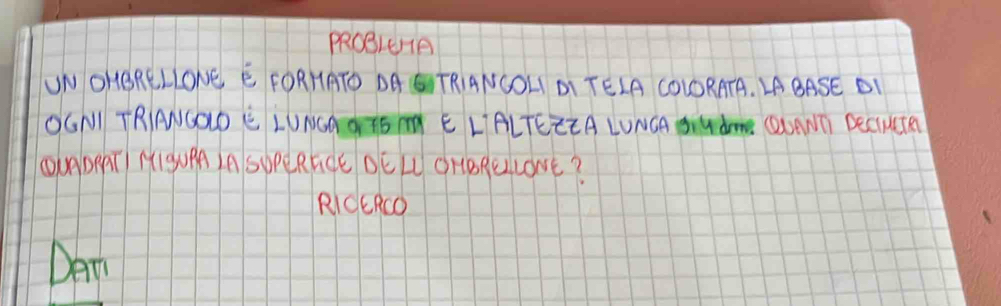 PROBLEMA
UN OMBRELLONE È FORMATO DA 6 TRIANGOLI DI TELA COLORATA. LA BASE DI
OGNI TRIANGOLO È LUNGA 0,75 m E L'ALTEZZA LUNGA dm. QUANTI DECIMETRI
QUADRATI MISURA LA SUPERFICE DELL OMBRELLONE?
RICERCO
DATI